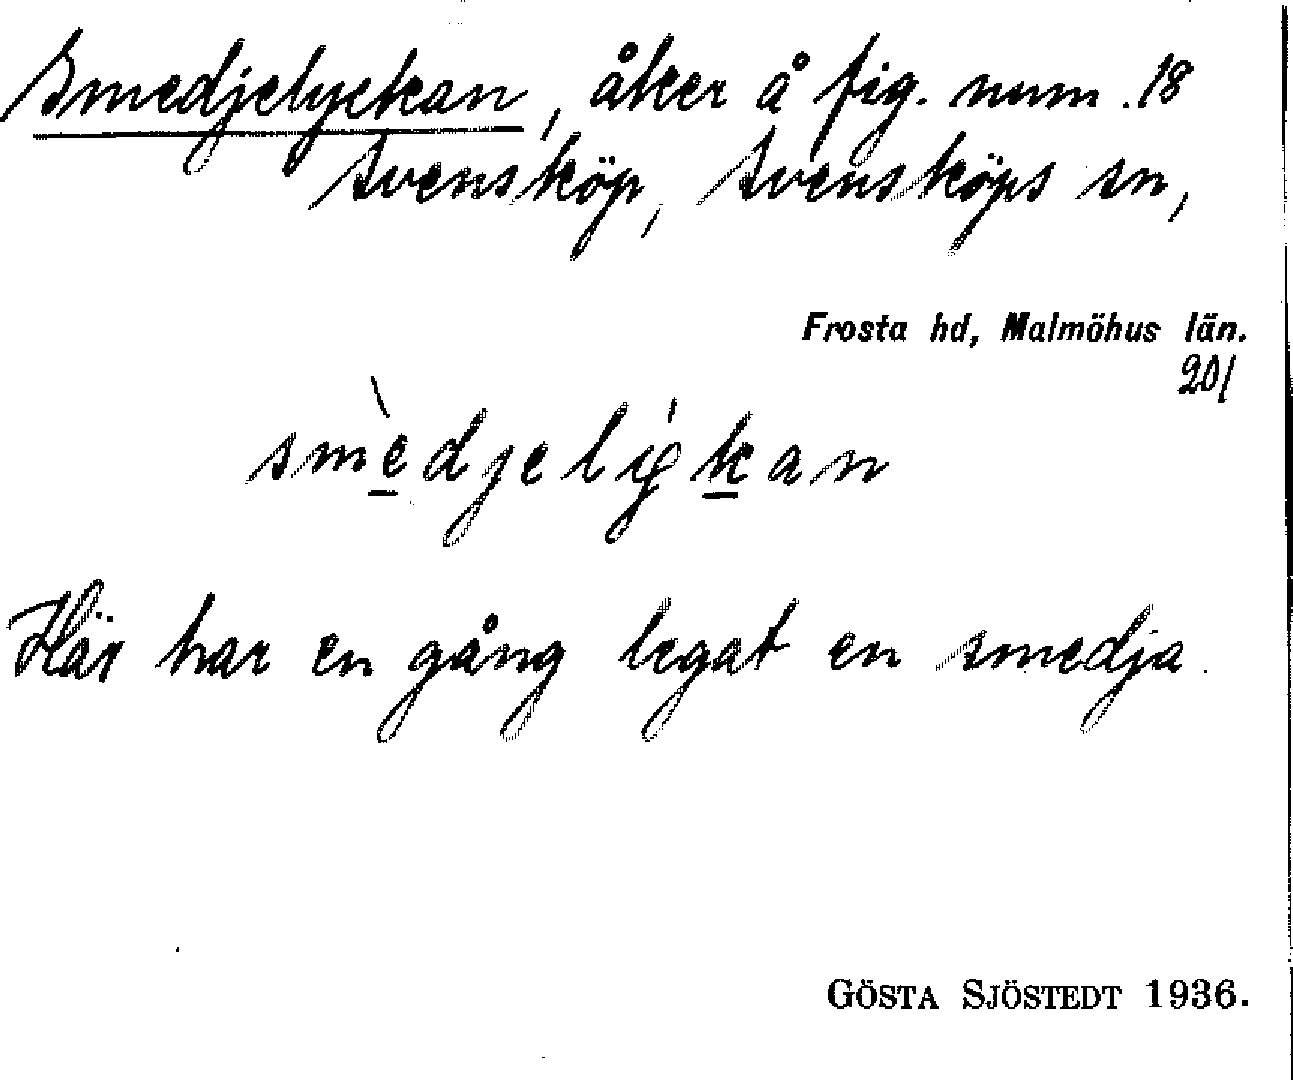 Smedjelyckan, åker å fig. num. 18
Svensköp, Svensköps sn,
Frosta hd, Malmöhus län.
201
smèdjeligkan
Här har en gång legat en smedja.
GÖSTA SJÖSTEDT 1936.